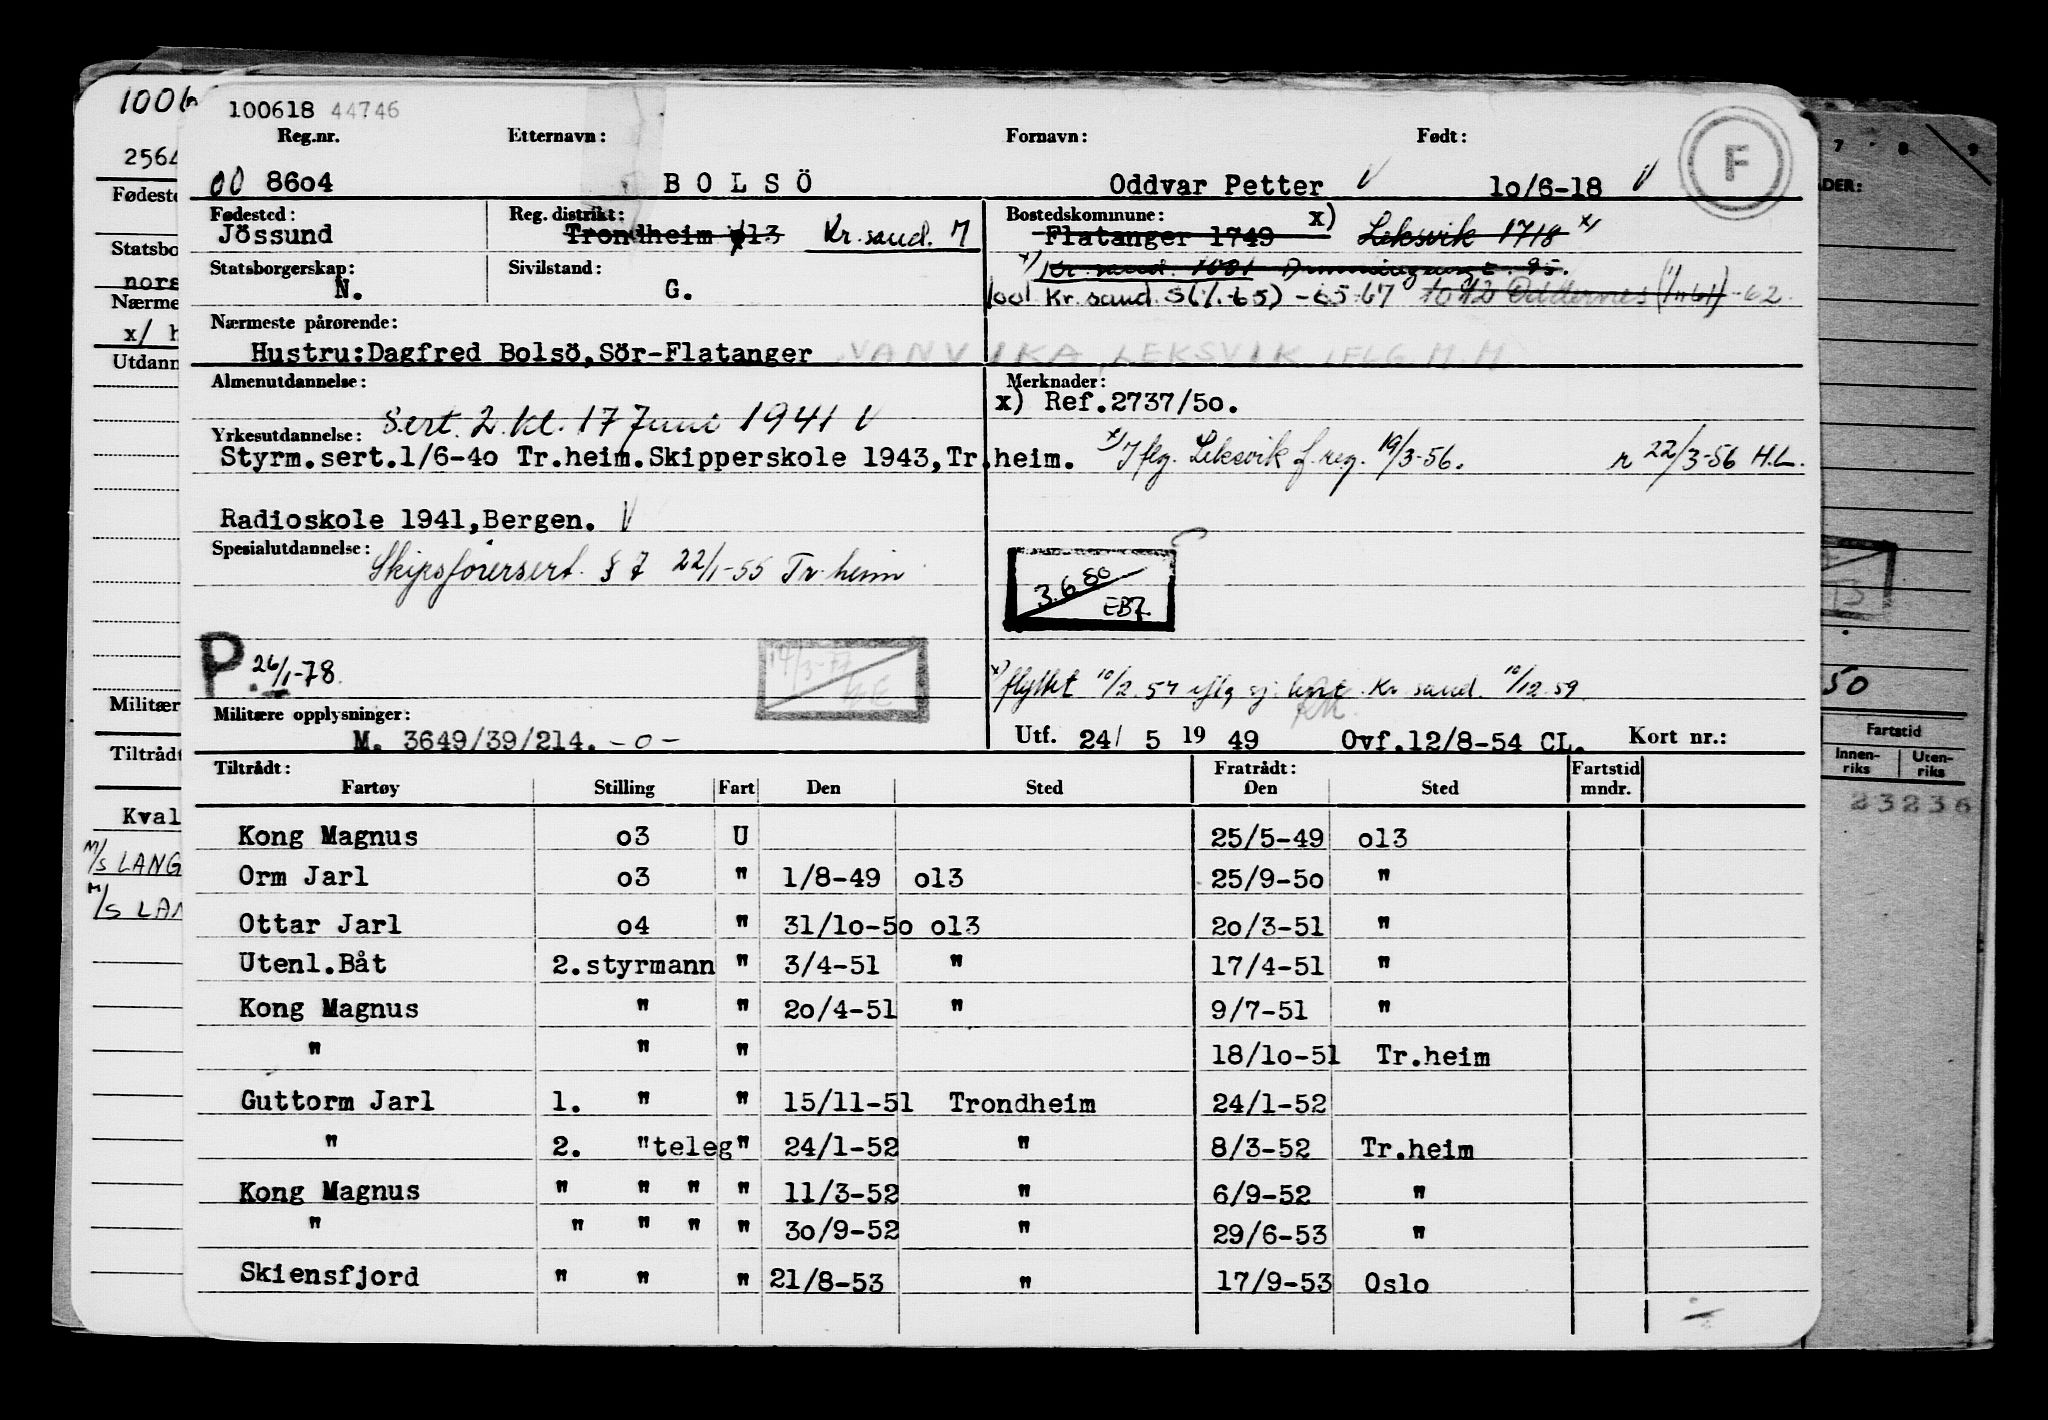 1006
100618 44746
Reg.nr. Etternavn: Fornavn: Født:
00 86o4 B O L S Ö Oddvar Petter V 1o/6-18 V
F
Fødested: Reg. distrikt: Bostedskommune: x)
Jössund Trondheim o13 Kr.sand. 7 Flatanger 1749 Leksvik 1718 x)
Statsborgerskap: Sivilstand: x) Kr. sand. 1001 95.
N. G. 1001 Kr. sand. S(1/1-65) -65-67 1012 Oddernes (1/1 61) -62.
Nærmeste pårørende:
Hustru:Dagfred Bolsö,Sör-Flatanger VANVIKA, LEKSVIK IFLG. M.M.
Almenutdannelse: Merknader:
x) Ref.2737/5o.
Sert. 2. kl. 17 Juni 1941 V
Yrkesutdannelse:
Styrm.sert.1/6-4o Tr.heim.Skipperskole 1943,Tr.heim. x) Iflg. Leksvik f.reg. 19/3-56. r 22/3-56 H.L.
Radioskole 1941,Bergen. V
Spesialutdannelse:
Skipsførersert. § 7 22/1-55 Tr.heim
3.6.80
EBJ.
P. 26/1-78. 14/3-77
x) flyttet 10/2.57 iflg sj. kort. Kr. sand. 10/12.59
Militære opplysninger:
M. 3649/39/214. -o- Utf. 24/ 5 19 49 Ovf.12/8-54 CL. Kort nr.:
Tiltrådt: Fratrådt: Fartstid
Fartøy Stilling Fart Den Sted Den Sted mndr.
Kong Magnus o3 U 25/5-49 o13
Orm Jarl o3 " 1/8-49 o13 25/9-5o "
Ottar Jarl o4 " 31/1o-5o o13 2o/3-51 "
Utenl.Båt 2.styrmann " 3/4-51 " 17/4-51 "
Kong Magnus " " 2o/4-51 " 9/7-51 "
" " " 18/1o-51 Tr.heim
Guttorm Jarl 1. " " 15/11-51 Trondheim 24/1-52
" 2. "teleg" 24/1-52 " 8/3-52 Tr.heim
Kong Magnus " " " " 11/3-52 " 6/9-52 "
" " " " " 3o/9-52 " 29/6-53 "
Skiensfjord " " " 21/8-53 " 17/9-53 Oslo
2564
Fødeste
Statsbo
nors
Nærme
x/ h
Utdann
Militær
Tiltrådt
Kval
M/S LANG
M/S LAN
7 8 9
ADER:
50
Fartstid
Innen-
riks
Uten-
riks
23236